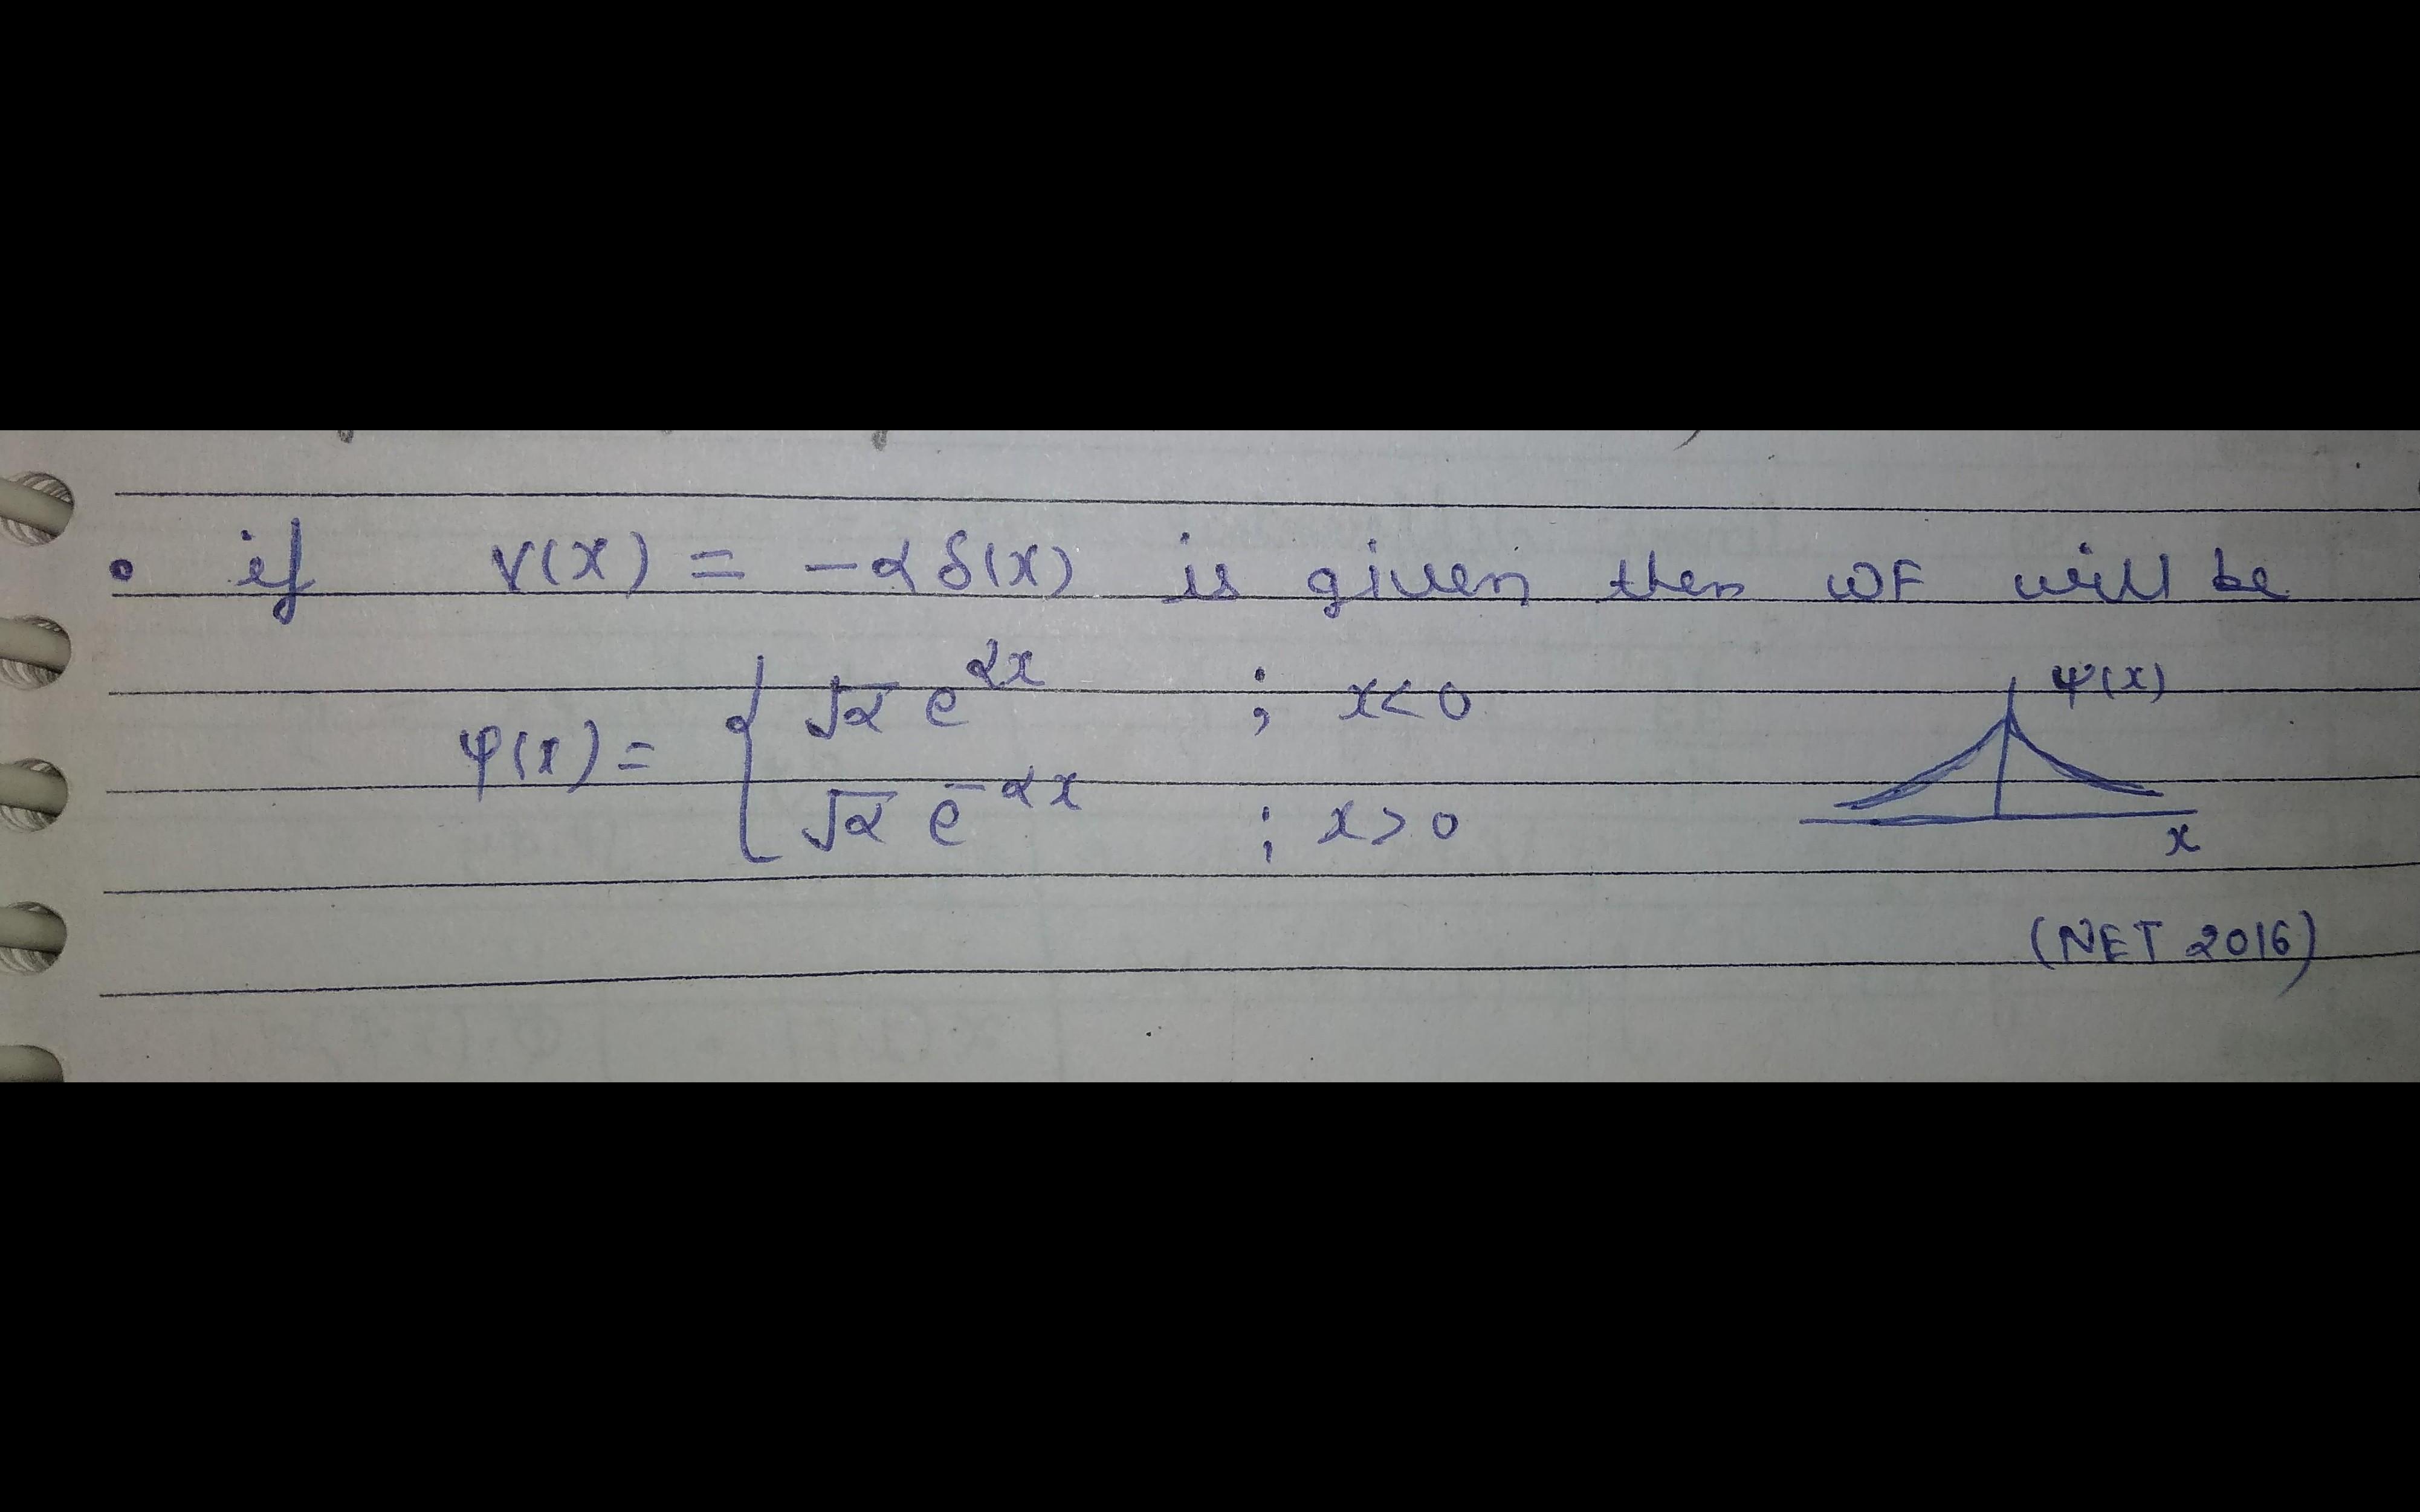 • if V(x) = -αδ(x) is given then WF will be
ψ(x) = { √α e^{αx} ; x<0
√α e^{-αx} ; x>0
ψ(x)
x
(NET 2016)